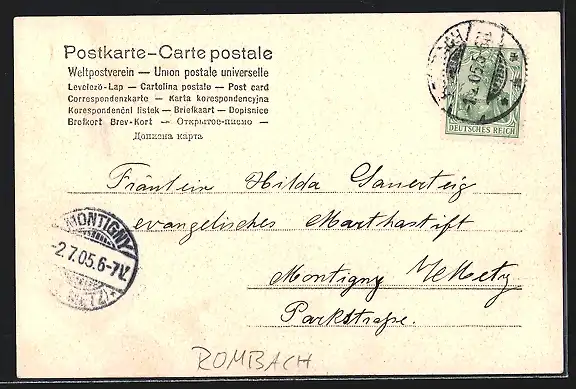 Postkarte-Carte postale
Weltpostverein — Union postale universelle
Levelező-Lap — Cartolina postale — Post card
Correspondenzkarte — Karta korespondencyjna
Korespondenční listek — Briefkaart — Dopisnice
Brefkort Brev-Kort — Открытое-письмо —
Дописна карта
DEUTSCHES REICH
Fräulein Hilda Sauerteig
evangelisches Marthastift
Montigny b/Metz
Parkstraße.
MONTIGNY
-2.7.05.6-7V.
(METZ)
ROMBACH